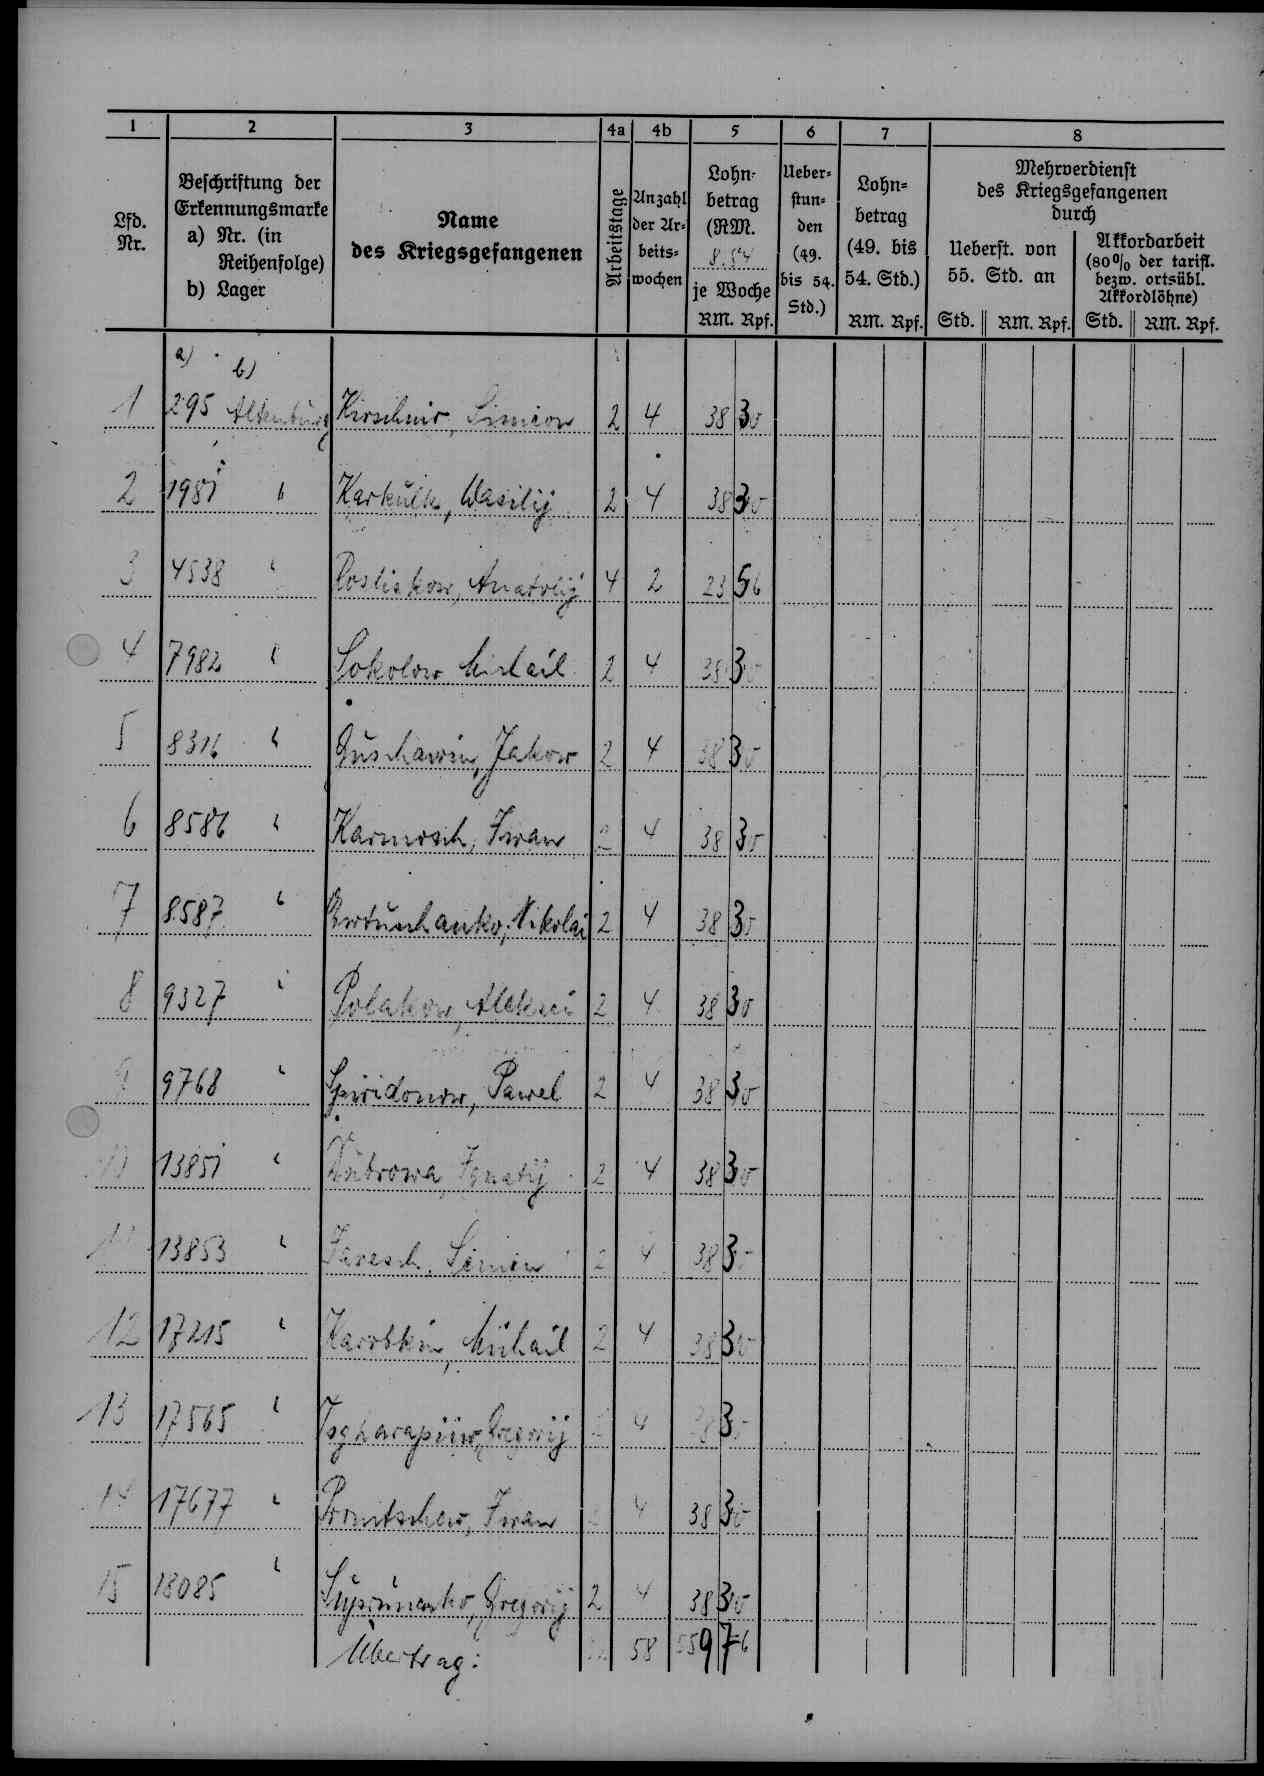 1 2 3 4a 4b 5 6 7 8
Lfd. Nr.
Beschriftung der Erkennungsmarke a) Nr. (in Reihenfolge) b) Lager
Name des Kriegsgefangenen
Arbeitstage
Anzahl der Ar- beits- wochen
Lohn- betrag (RM. 8.54 je Woche RM. Rpf.
Ueber- stun- den (49. bis 54. Std.)
Lohn- betrag (49. bis 54. Std.) RM. Rpf.
Mehrverdienst des Kriegsgefangenen durch
Ueberst. von 55. Std. an Std. RM. Rpf.
Akkordarbeit (80% der tarifl. bezw. ortsübl. Akkordlöhne) Std. RM. Rpf.
a) b)
1 295 Altenburg Kirschnir, Simeon 2 4 38 30
2 1981 " Karkulk, Wasilij 2 4 38 30
3 4538 " Anatolij 4 2 23 56
4 7982 " Sokolow Michail 2 4 38 30
5 8316 " Guschawin, Jakow 2 4 38 30
6 8586 " Karmosch, Iwan 2 4 38 30
7 8587 " Nikolai 2 4 38 30
8 9327 " Polakow, Aleksei 2 4 38 30
9 9768 " Spiridonow, Pawel 2 4 38 30
10 13851 " Ignatij 2 4 38 30
11 13853 " Simeon 2 4 38 30
12 17215 " Karobkin, Michail 2 4 38 30
13 17565 " Gregorij 4 38 30
14 17677 " Iwan 4 38 30
15 18085 " Suprunenko, Gregorij 2 4 38 30
Übertrag: 58 559 76